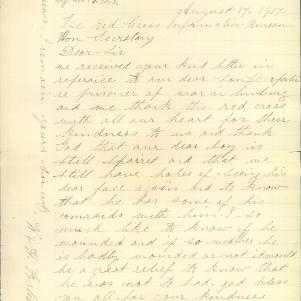 August 17, 1917.
The Red Cross Information Bureau
Hon Secretary
Dear Sir
we received your kind letter in
referaice to our dear son
re prisoner of war in
and we thank the red cross
with all our heart for their
kindness to us and thank
God that our dear boy is
still sparred and that we
still have hopes of seeing his
dear face again and to know
that he has some of his
comraids with him. I so
much like to know if he
wounded and if so weather he
is badly wounded as not it would
be a great relief to know that
he was not to bad. god bless
you all for your kindness
I remain yours sincerely